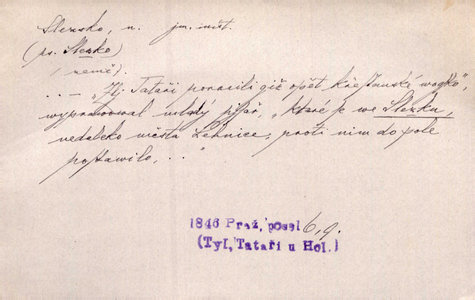 Slezsko, n. jm. míst.
(ps. Slezko)
(země).
.. — „Tataři porazili již opět křesťanské wogsko",
wyprawowal mladý písař, „které se we Slezku,
nedaleko města Lehnice, proti nim do pole
postawilo, ..."
1846 Praž. posel 6, 9.
(Tyl, Tataři u Hol.)